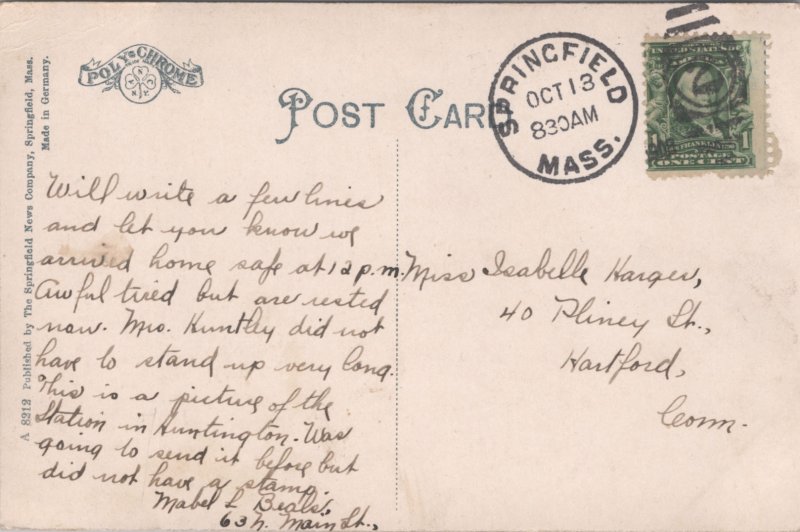 POLY-CHROME
POST CARD
SPRINGFIELD
OCT 13
830AM
MASS.
FRANKLIN
POSTAGE
ONE CENT
1
A 8212 Published by The Springfield News Company, Springfield, Mass.
Made in Germany.
Will write a few lines
and let you know we
arrived home safe at 12 p.m.
Awful tired but are rested
now. Mrs. Huntley did not
have to stand up very long.
This is a picture of the
Station in Huntington. Was
going to send it before but
did not have a stamp.
Mabel L Beals,
63 N. Main St.,
Miss Isabelle Harger,
40 Pliney St.,
Hartford,
Conn.